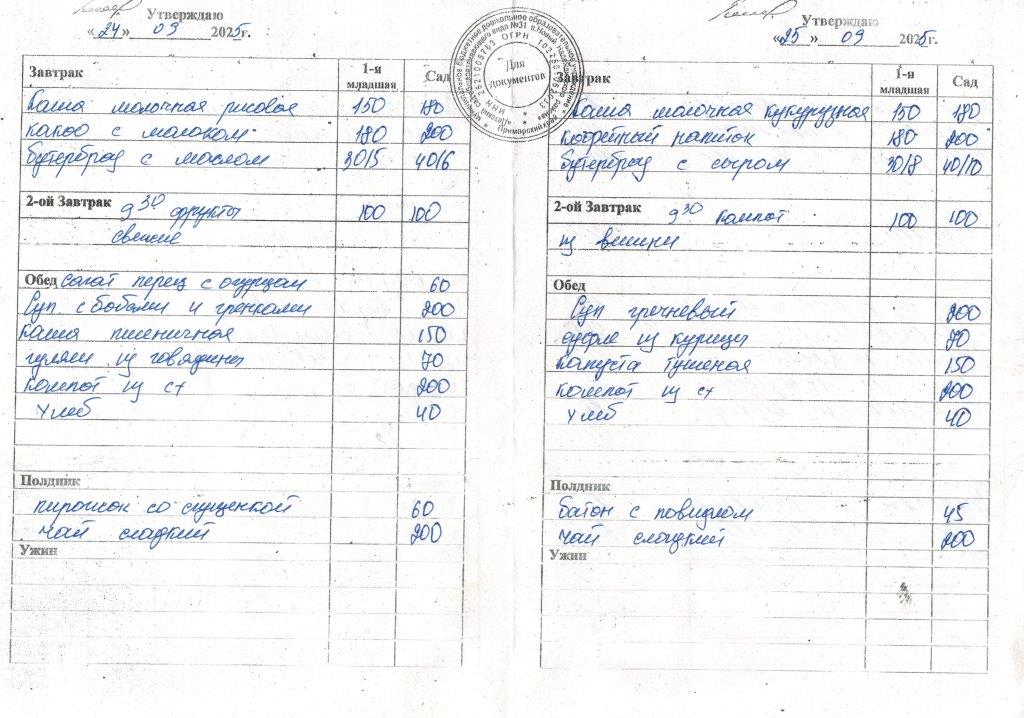 Утверждаю
«24» 09 2025г.
Завтрак 1-я младшая Сад
Каша молочная рисовая 150 180
какао с молоком 180 200
бутерброд с маслом 30/5 40/6
2-ой Завтрак 9 30 фрукты 100 100
свежие
Обед салат перец с огурцам 60
Суп с бобами и гренками 200
Каша пшеничная 150
гуляш из говядины 70
компот из сх 200
хлеб 40
Полдник
пирожок со сгущенкой 60
чай сладкий 200
Ужин
Для документов
Утверждаю
«25» 09 2025г.
Завтрак 1-я младшая Сад
Каша молочная кукурузная 150 180
кофейный напиток 180 200
бутерброд с сыром 30/8 40/10
2-ой Завтрак 9 30 Компот 100 100
из вишни
Обед
Суп гречневый 200
суфле из курицы 70
капуста тушеная 150
компот из сх 200
хлеб 40
Полдник
батон с повидлом 45
чай сладкий 200
Ужин